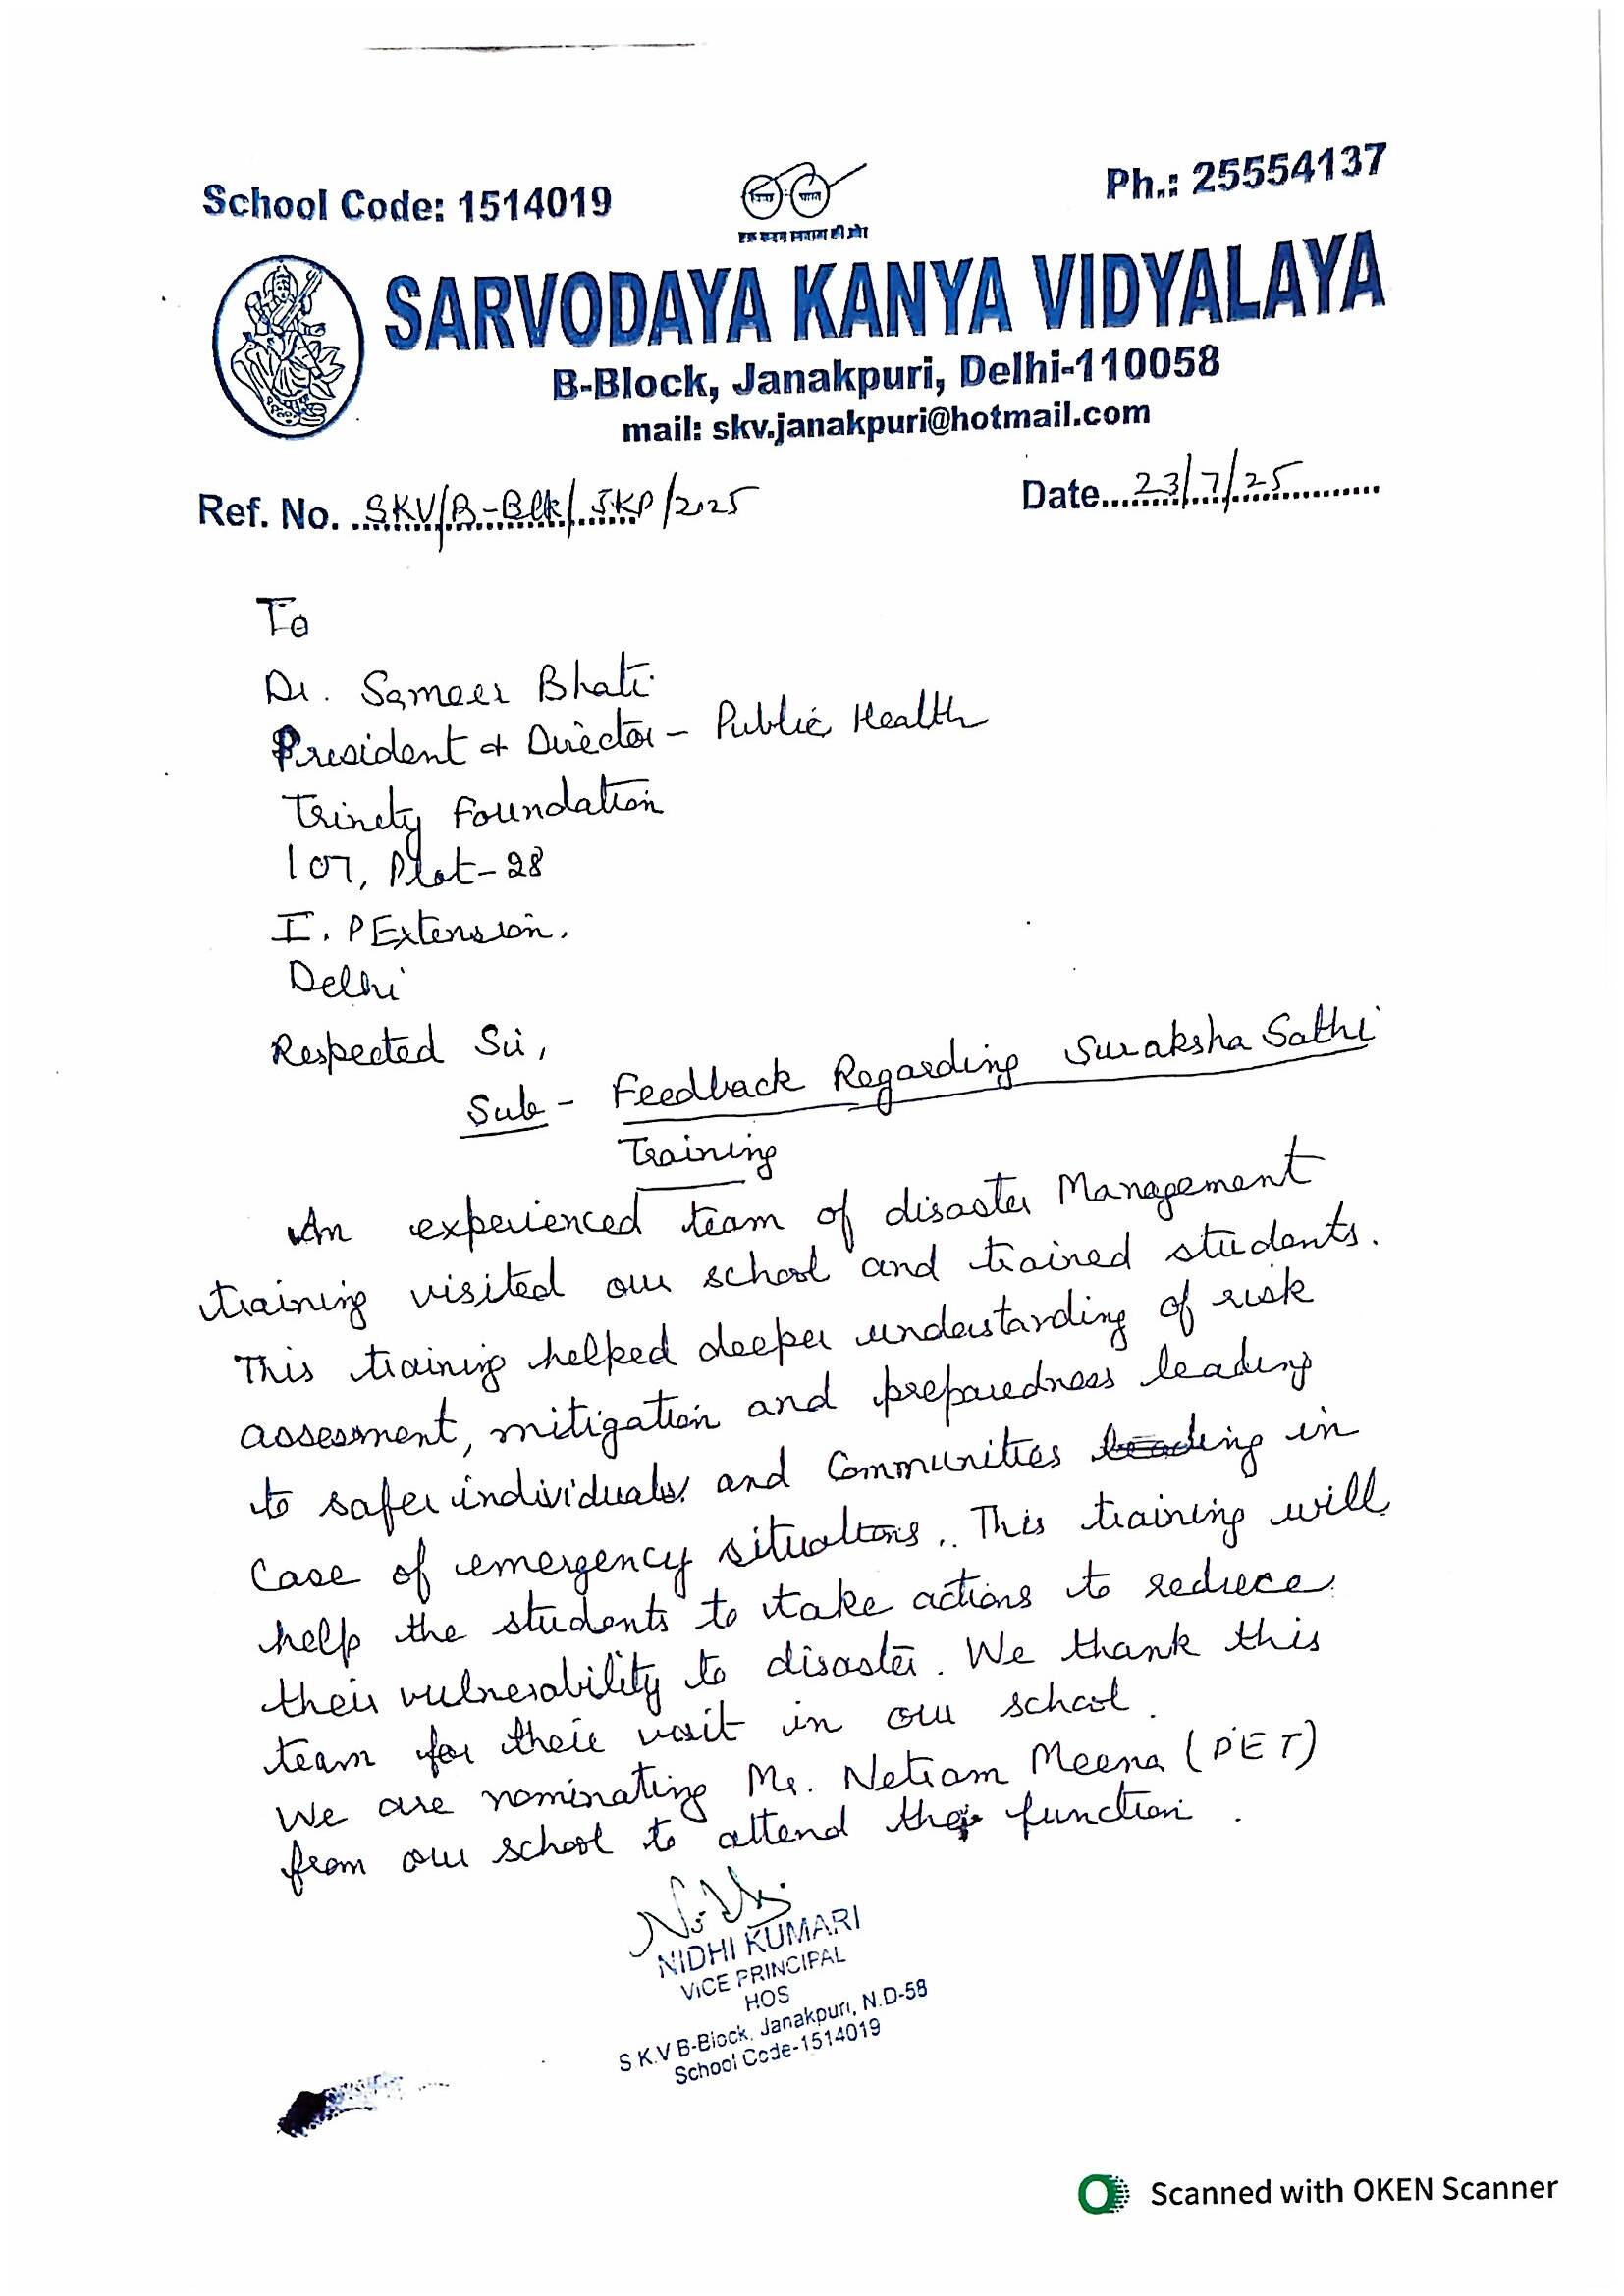 School Code: 1514019
Ph.: 25554137
एक कदम स्वच्छता की ओर
SARVODAYA KANYA VIDYALAYA
B-Block, Janakpuri, Delhi-110058
mail: skv.janakpuri@hotmail.com
Ref. No. SKV/B-Blk/JKP/2025
Date...23/7/25
To
Dr. Sameer Bhati
President & Director - Public Health
Trinity Foundation
107, Plot-28
I. P Extension,
Delhi
Respected Sir,
Sub - Feedback Regarding Suraksha Sathi
Training
An experienced team of disaster Management
training visited our school and trained students.
This training helped deeper understanding of risk
assessment, mitigation and preparedness leading
to safer individuals and Communities leading in
Case of emergency situations. This training will
help the students to take actions to reduce
their vulnerability to disaster. We thank this
team for their visit in our school.
We are nominating Mr. Netram Meena (PET)
from our school to attend the function.
Nidhi
NIDHI KUMARI
VICE PRINCIPAL
HOS
S.K.V B-Block, Janakpuri, N.D-58
School Code-1514019
Scanned with OKEN Scanner